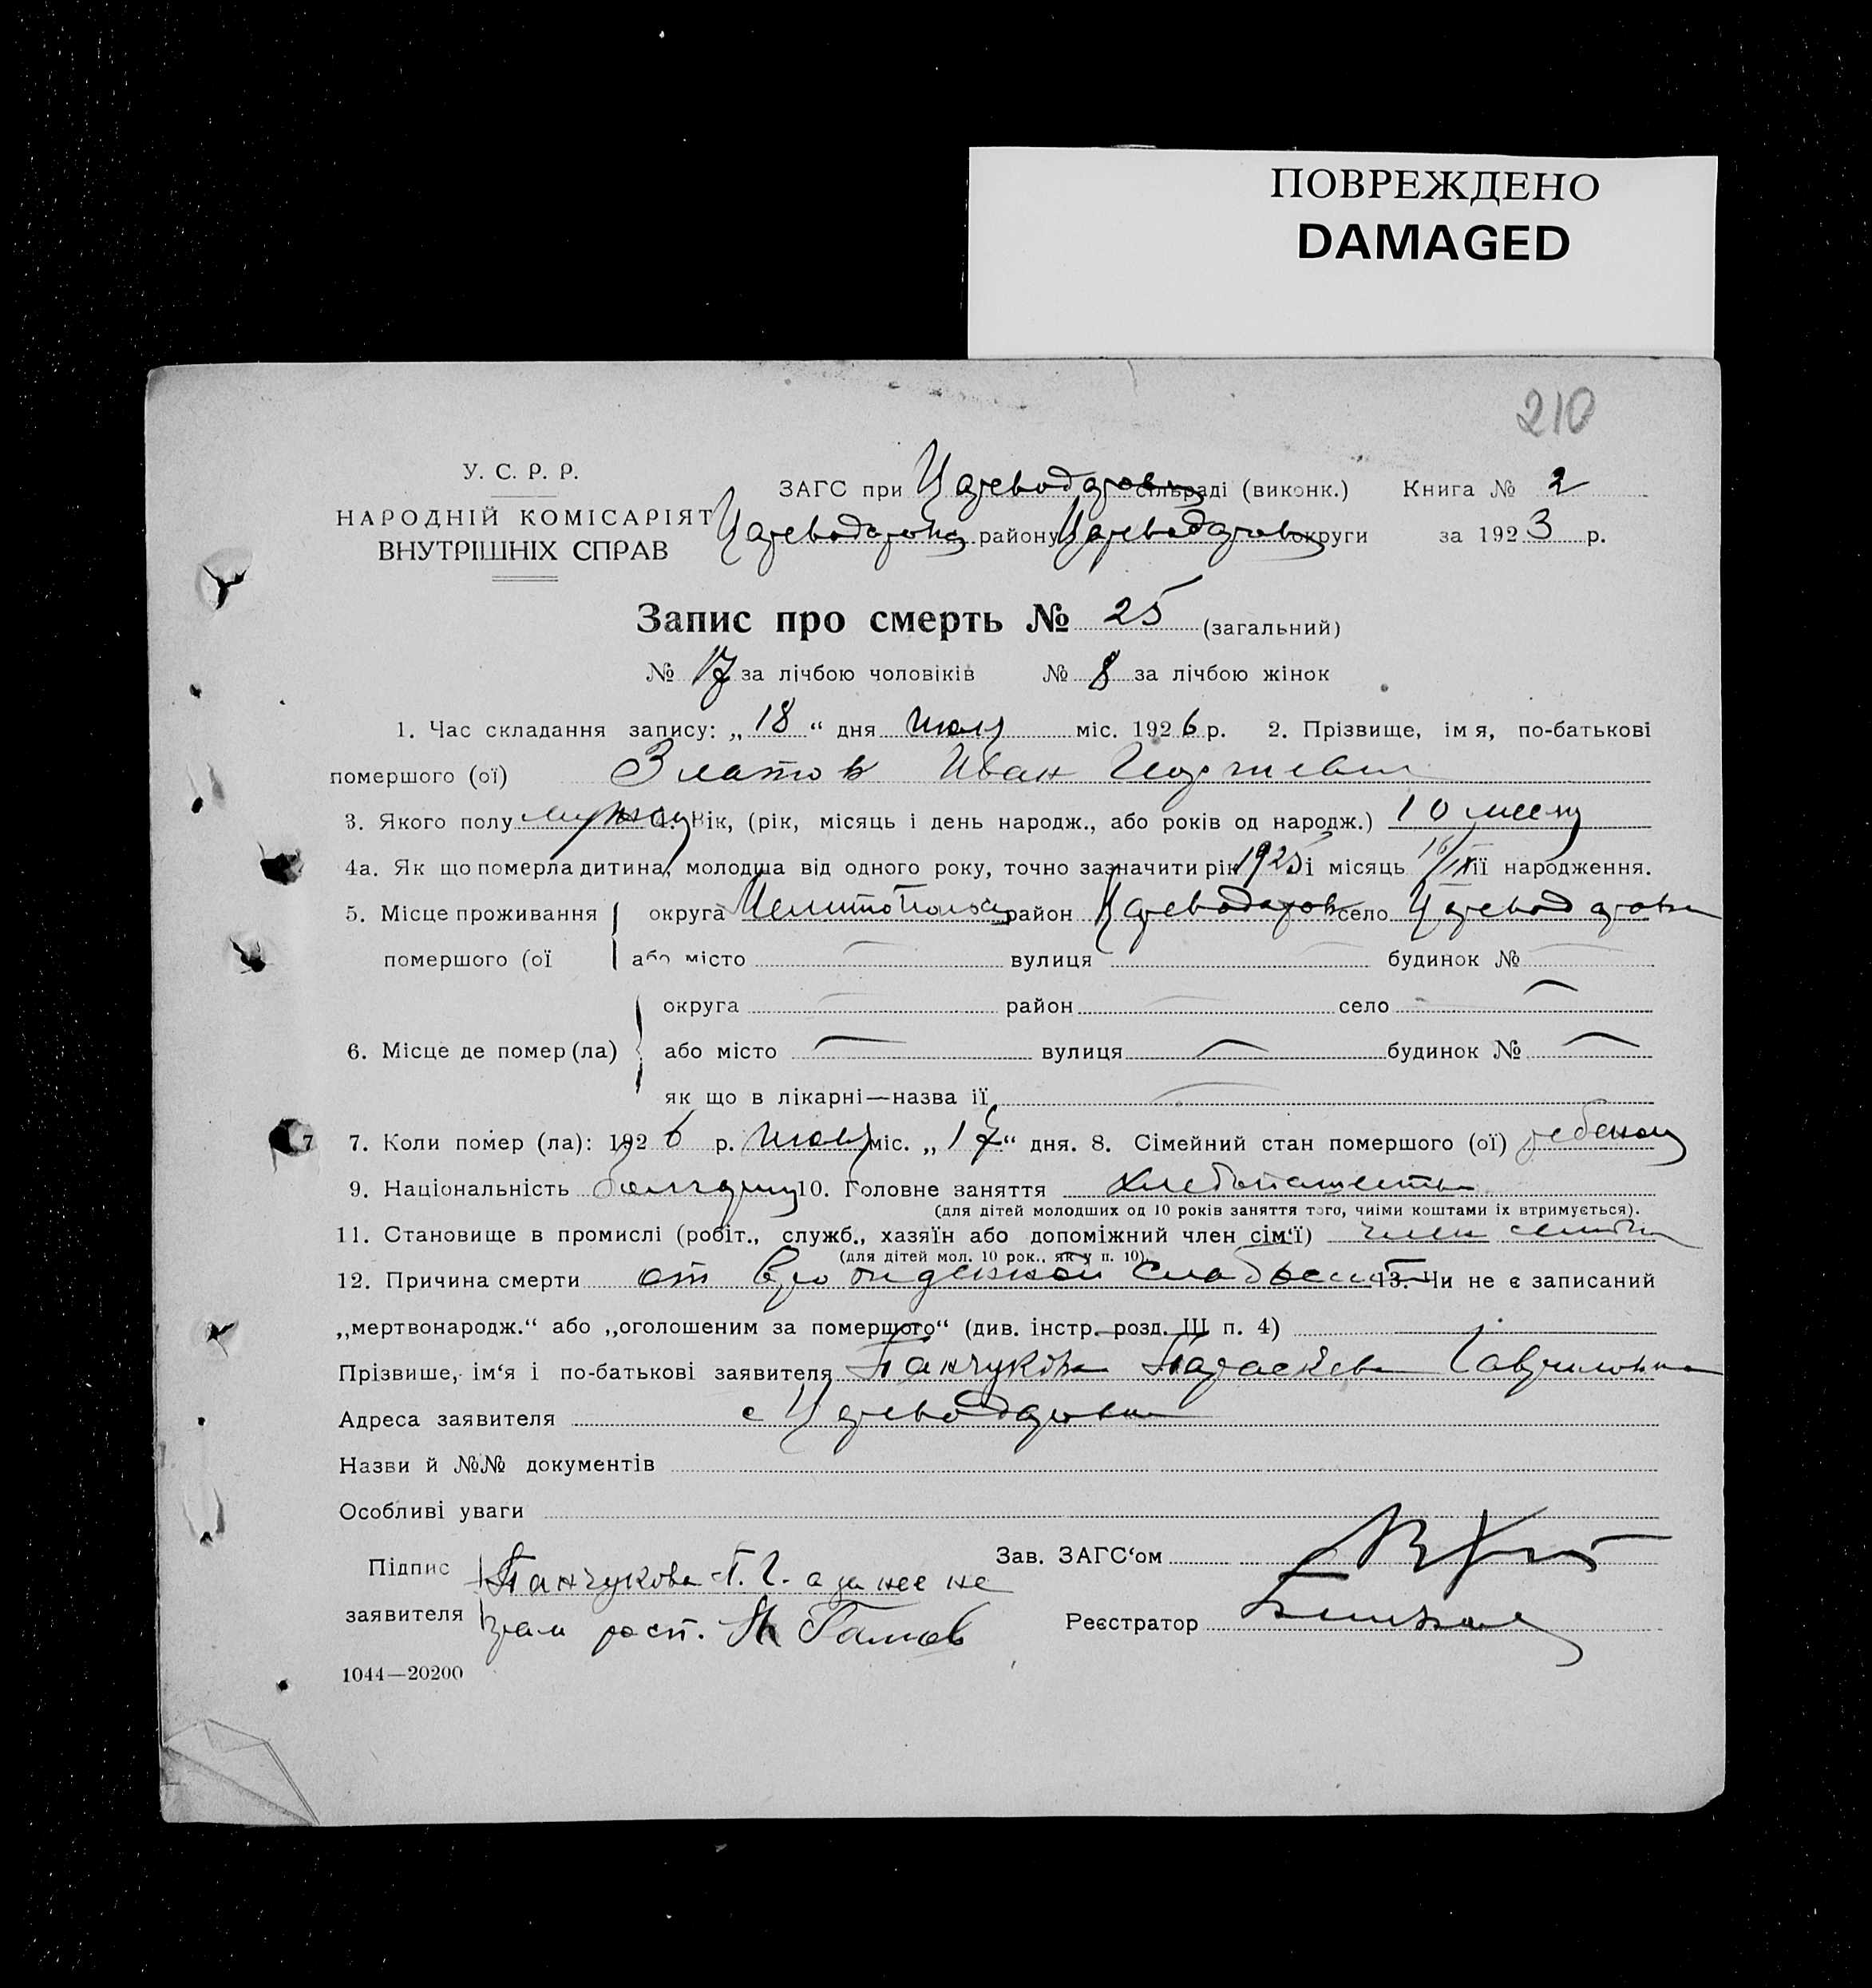 ПОВРЕЖДЕНО
DAMAGED
210
У. С. Р. Р.
НАРОДНІЙ КОМІСАРІЯТ
ВНУТРІШНІХ СПРАВ
ЗАГС при Цареводаровск сільраді (виконк.) Книга № 2
району округи за 1923 р.
Запис про смерть № 25 (загальний)
№ 17 за лічбою чоловіків № 8 за лічбою жінок
1. Час складання запису: „ 18 “ дня міс. 1926 р. 2. Прізвище, ім я, по-батькові
помершого (ої) Златов Иван Георгиевич
3. Якого полу мужск 4. Вік, (рік, місяць і день народж., або років од народж.) 10 месяц
4а. Як що померла дитина, молодша від одного року, точно зазначити рік 1925 і місяць її народження.
5. Місце проживання округа Мелитопольск район село
помершого (ої або місто вулиця будинок №
округа район село
6. Місце де помер (ла) або місто вулиця будинок №
як що в лікарні—назва її
7 7. Коли помер (ла): 1926 р. міс. „ 17 “ дня. 8. Сімейний стан помершого (ої) ребенок
9. Національність болгарин 10. Головне заняття хлебопашество
(для дітей молодших од 10 років заняття того, чиїми коштами їх втримується).
11. Становище в промислі (робіт., служб., хазяїн або допоміжний член сім‘ї) член семьи
(для дітей мол. 10 рок., як у п. 10).
12. Причина смерти от врожденной слабости 13. Чи не є записаний
„мертвонародж.“ або „оголошеним за помершого“ (див. інстр. розд. III п. 4)
Прізвище, ім‘я і по-батькові заявителя Панчукова Параскева Гавриловна
Адреса заявителя с Цареводаровка
Назви й №№ документів
Особливі уваги
Підпис Панчукова П. Г. а за нее не
заявителя грам расп.
Зав. ЗАГС‘ом
Реєстратор
1044—20200